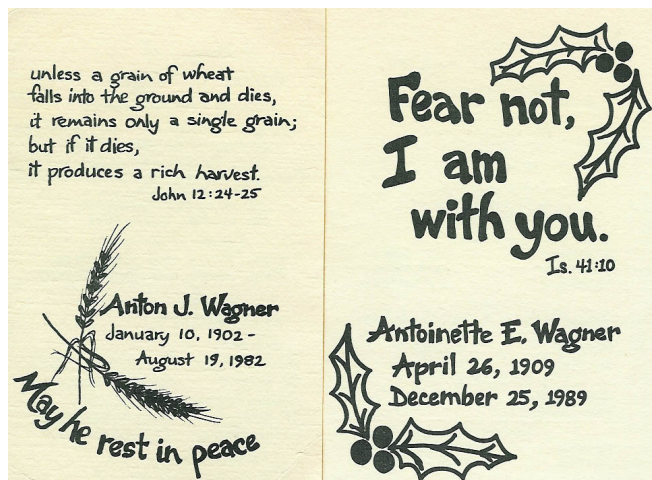 unless a grain of wheat
falls into the ground and dies,
it remains only a single grain;
but if it dies,
it produces a rich harvest.
John 12:24-25
Anton J. Wagner
January 10, 1902 -
August 19, 1982
May he rest in peace
Fear not,
I am
with you.
Is. 41:10
Antoinette E. Wagner
April 26, 1909
December 25, 1989